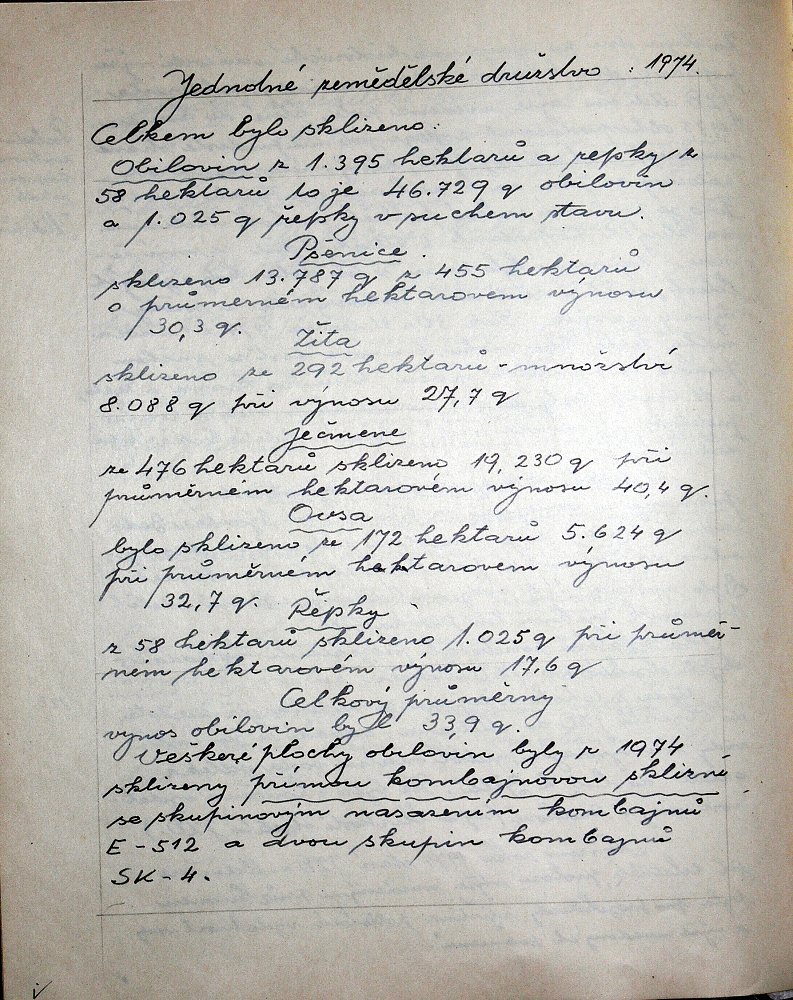 Jednotné zemědělské družstvo : 1974.
Celkem bylo sklizeno:
Obilovin z 1.395 hektarů a řepky z
58 hektarů to je 46.729 q obilovin
a 1.025 q řepky v suchem stavu.
Pšenice.
sklizeno 13.787 q z 455 hektarů
o průměrném hektarovem výnosu
30,3 q.
Žita
sklizeno ze 292 hektarů - množství
8.088 q při výnosu 27,7 q
Ječmene
ze 476 hektarů sklizeno 19,230 q při
průměrném hektarovém výnosu 40,4 q.
Ovsa
bylo sklizeno ze 172 hektarů 5.624 q
při průměrném hektarovem výnosu
32,7 q.
Řepky
z 58 hektarů sklizeno 1.025 q při průměr-
ném hektarovém výnosu 17,6 q
Celkový průměrný
vynos obilovin byl 33,9 q.
Veškeré plochy obilovin byly r 1974
sklizeny přímou kombajnovou sklizní
se skupinovým nasazením kombajnů
E - 512 a dvou skupin kombajnů
SK - 4.